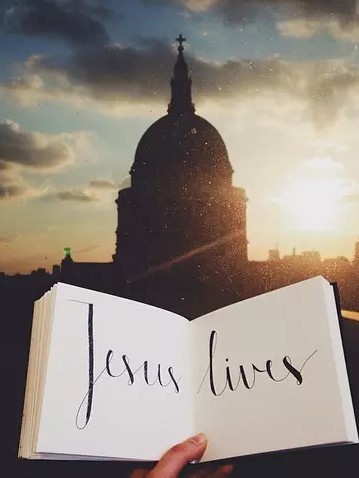 Jesus lives